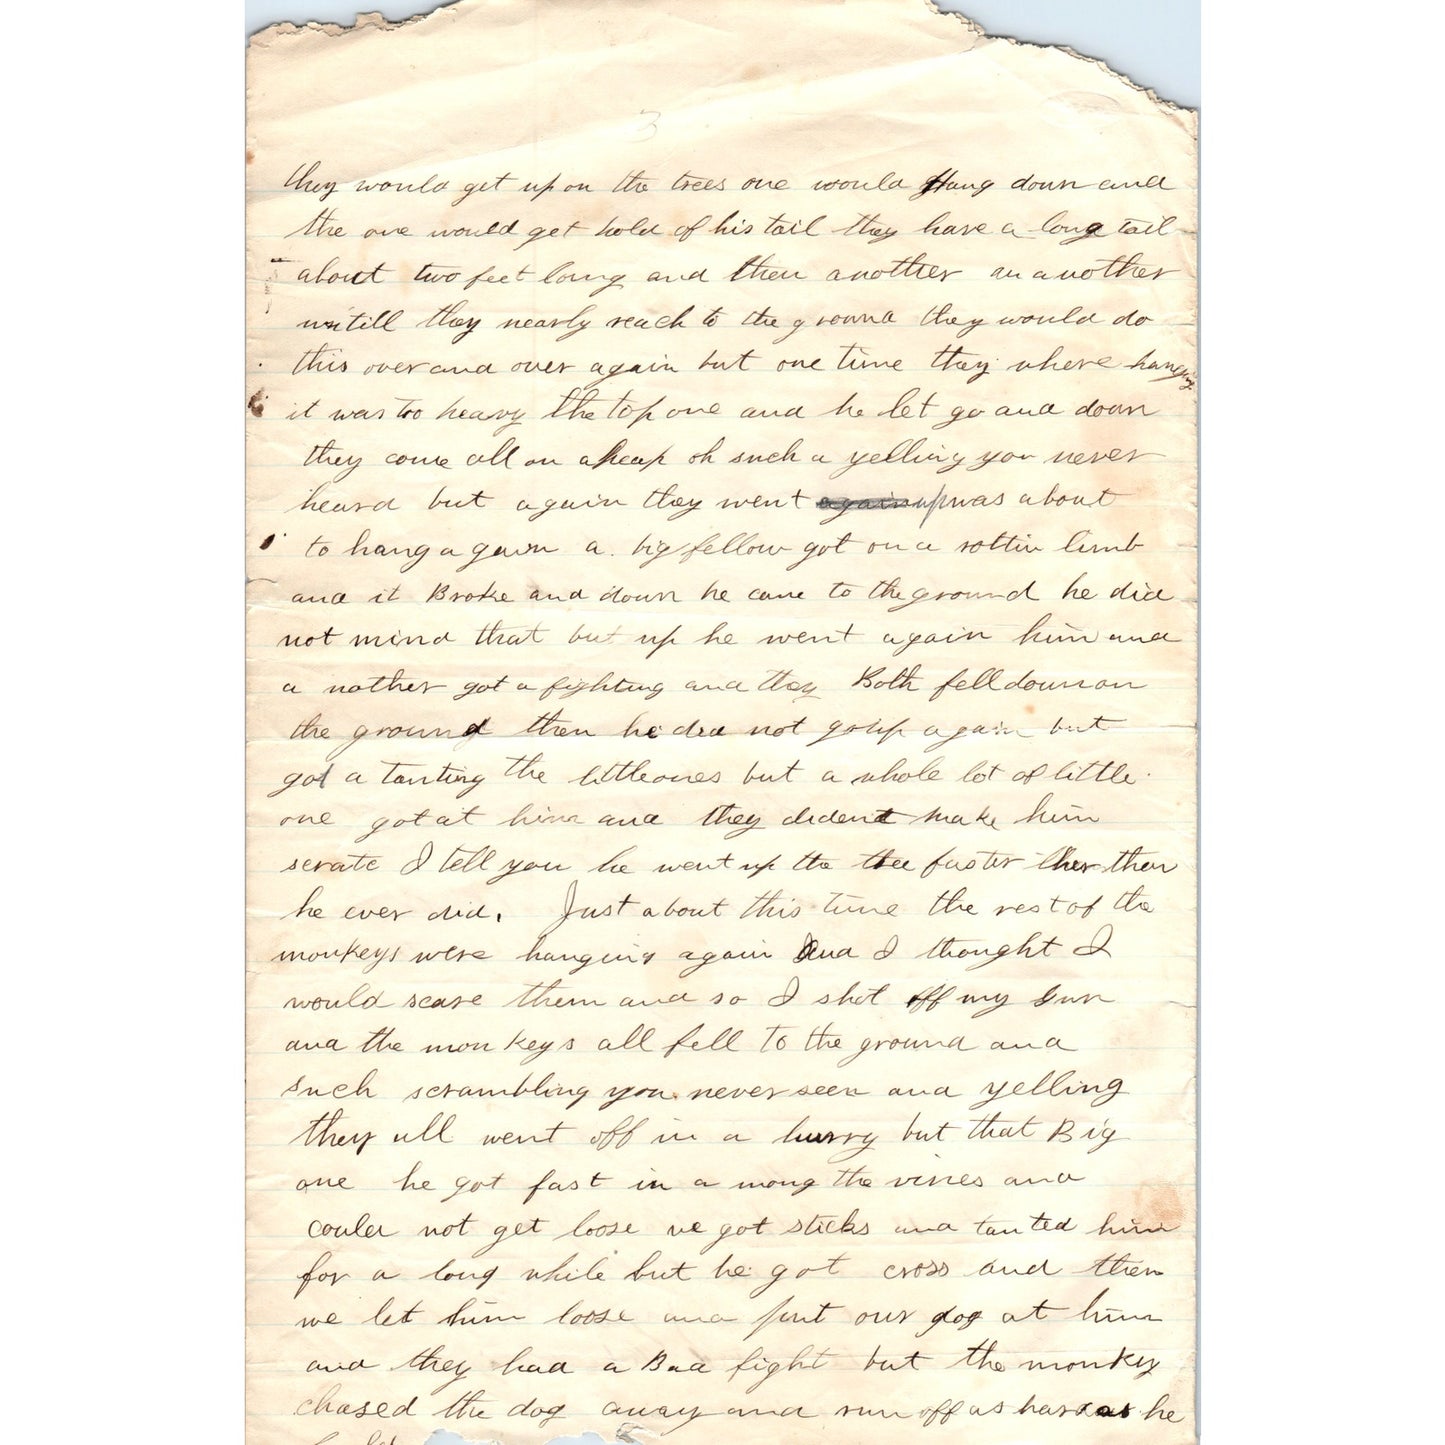 3
they would get up on the trees one would Hang down and
the one would get hold of his tail they have a long tail
about two feet long and then another an another
untill they nearly reach to the ground they would do
this over and over again but one time they where hanging
it was too heavy the top one and he let go and down
they come all on a heap oh such a yelling you never
heard but again they went again up was about
to hang again a big fellow got on a rottin limb
and it Broke and down he came to the ground he did
not mind that but up he went again him and
a nother got a fighting and they Both fell down on
the ground then he did not go up again but
got a tanting the little ones but a whole lot of little
one got at him and they dident make him
scrate I tell you he went up the tree faster ther than
he ever did. Just about this time the rest of the
monkeys were hanging again And I thought I
would scare them and so I shot off my Gun
and the monkeys all fell to the ground and
such scrambling you never seen and yelling
they all went off in a hurry but that Big
one he got fast in a mong the vines and
could not get loose we got sticks and tanted him
for a long while but he got cross and then
we let him loose and put our dog at him
and they had a Bad fight but the monkey
chased the dog away and run off as hard as he